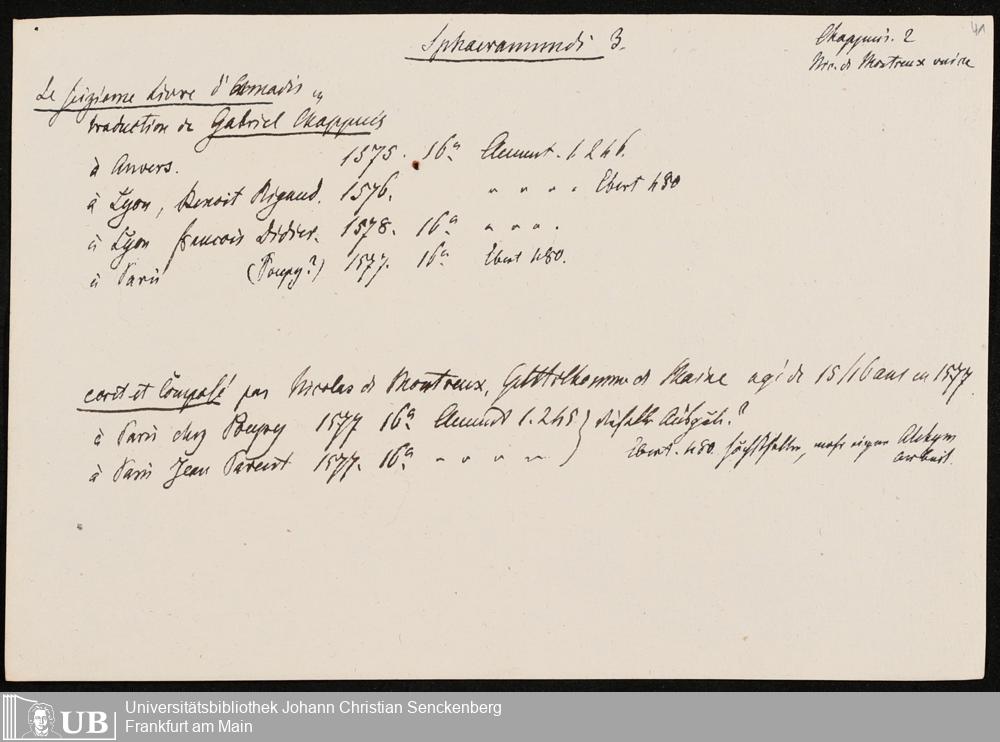 41
Sphaeramundi 3.
Chappuis. 2
Nic. d Montreux
Le seizieme Livre d'Amadis
traduction de Gabriel Chappuis
à Anvers. 1575. 16° Clement. 1. 246.
à Lyon, Benoit Rigaud. 1576. " " " " Ebert 480
à Lyon francois Didier. 1578. 16° " " " .
à Paris (Poupy?) 1577. 16° Ebert 480.
ecrit et Composé par Nicolas d Montreux, Gentilhomme d Maine agé de 15/16 ans en 1577
à Paris chez Poupy 1577 16° Clement 1. 245 } dieselbe Ausgabe?
à Paris Jean Parent 1577. 16° " " " " Ebert. 480. höchstselten, mehr eigene
arbeit.
Universitätsbibliothek Johann Christian Senckenberg
Frankfurt am Main
UB